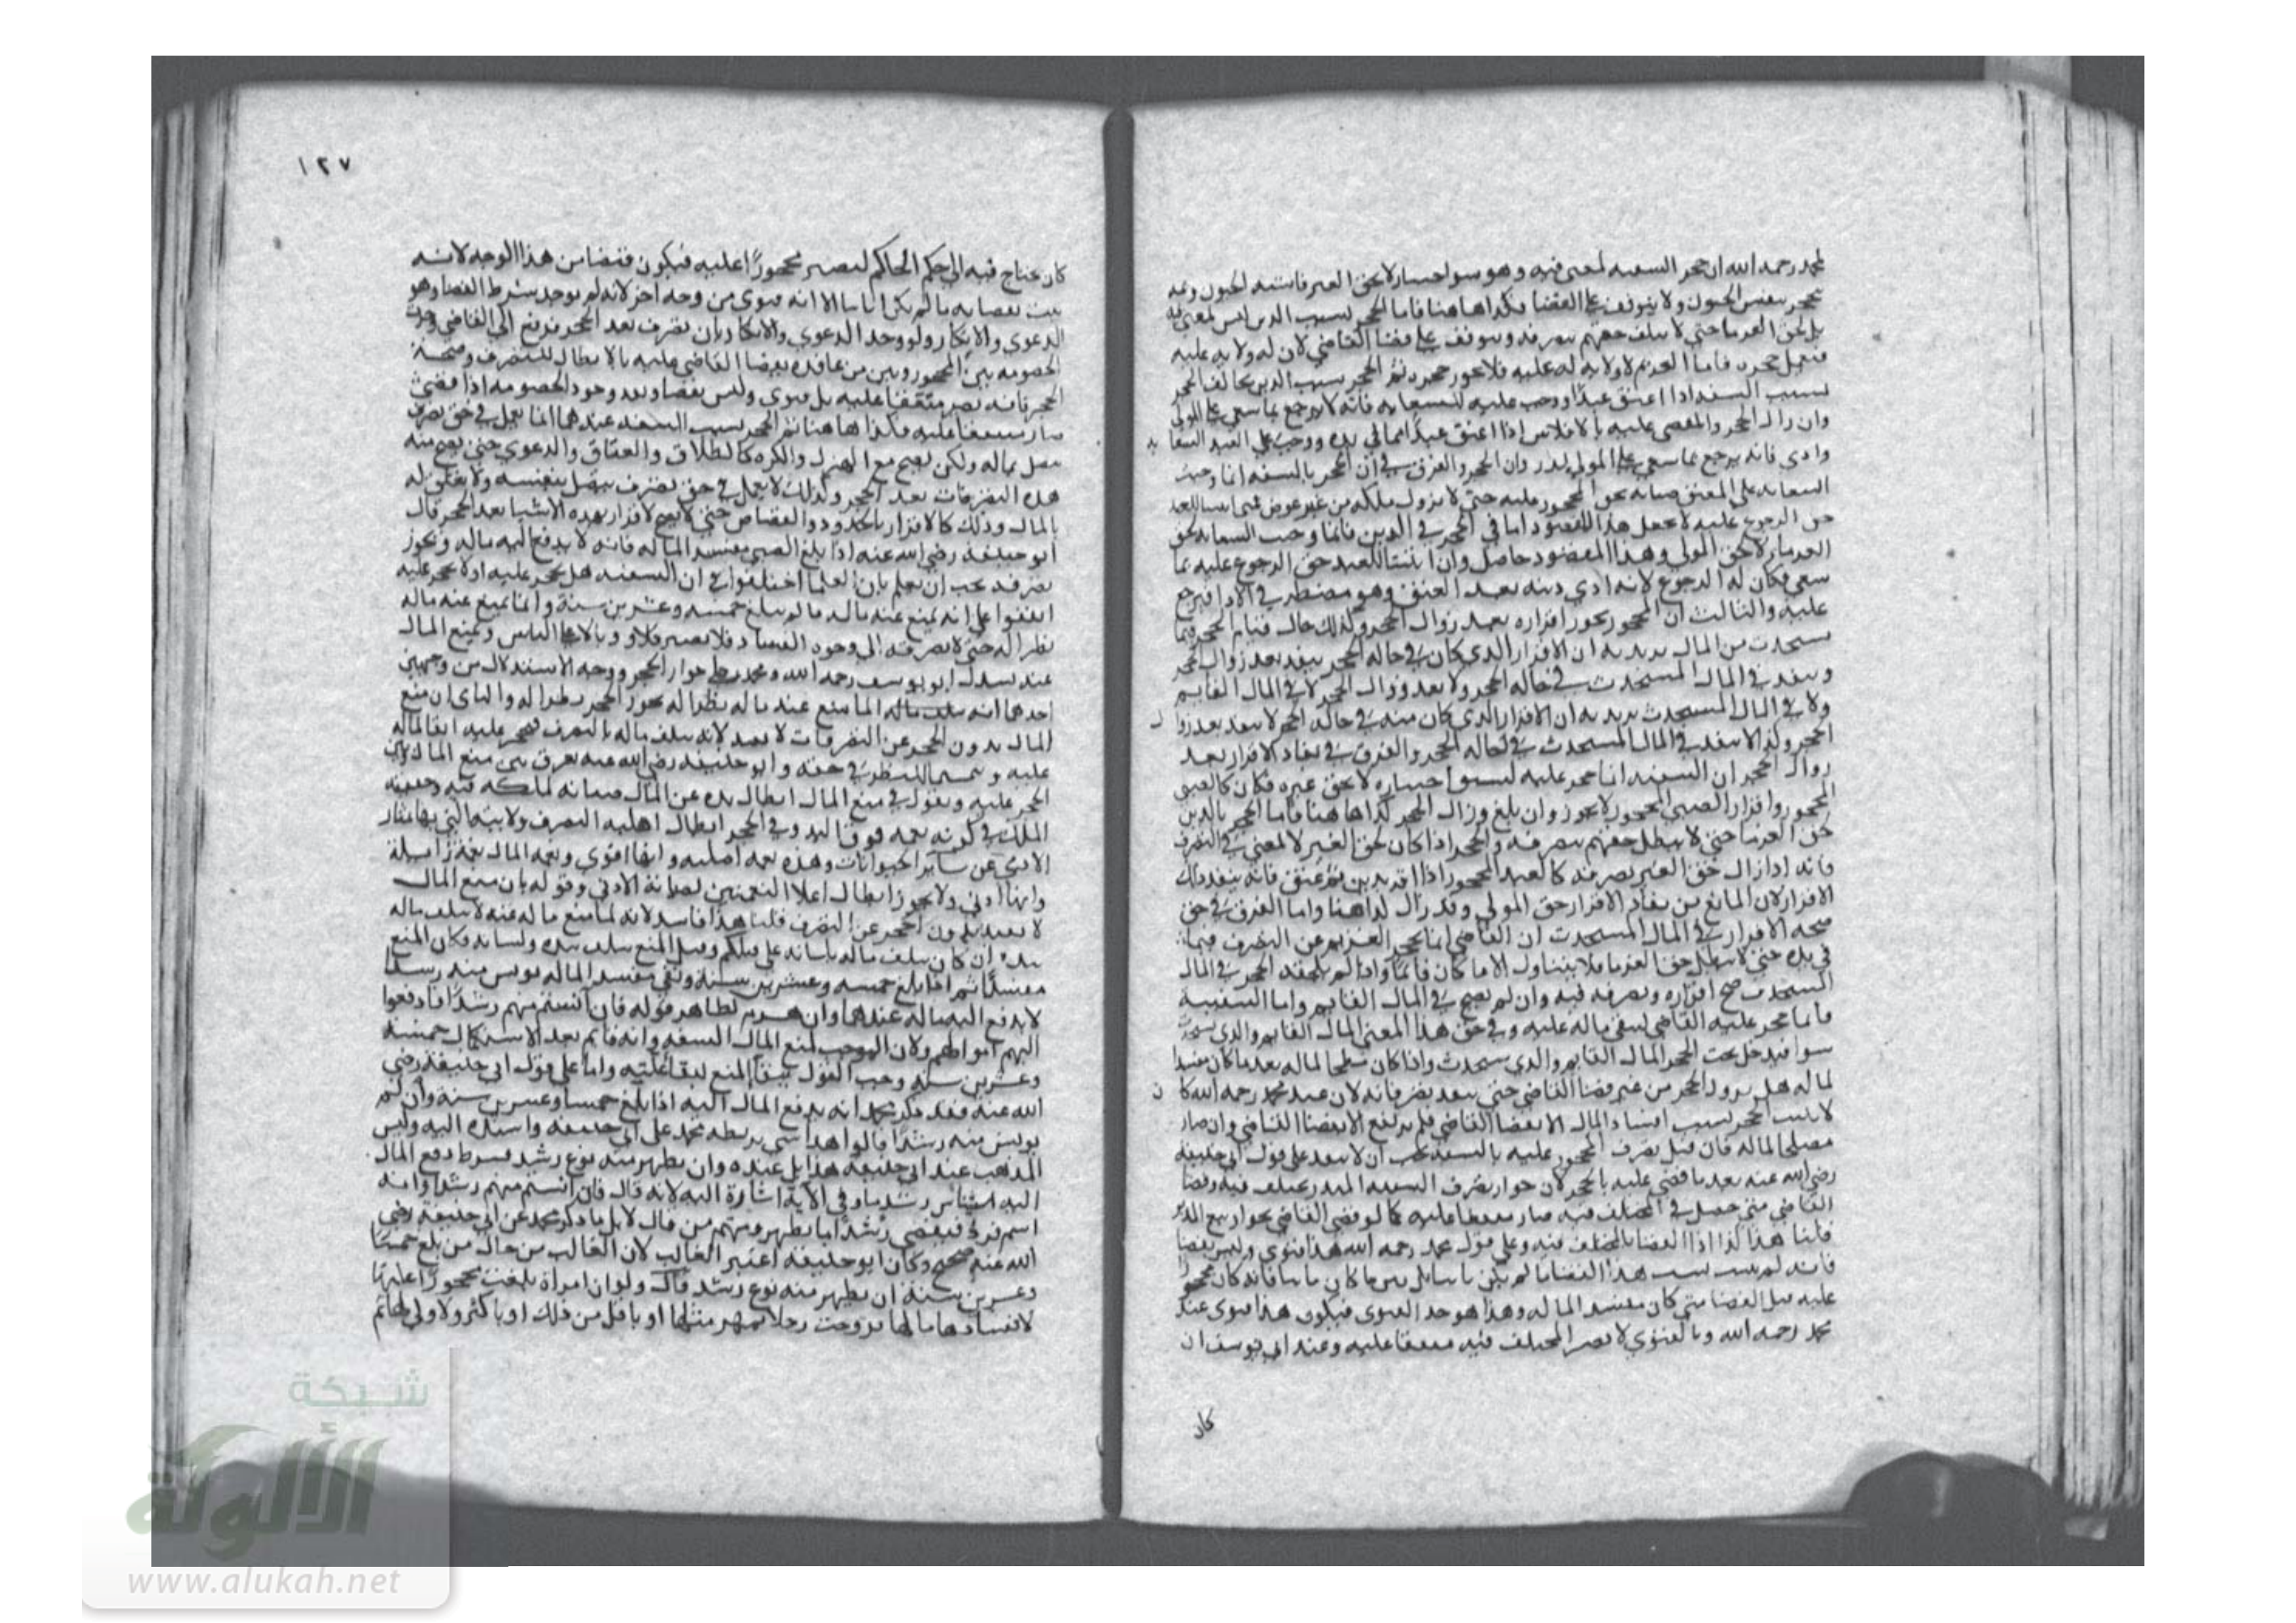 لمحمد رحمه الله ان حجر السفيه لمعنى فيه وهو سو اختياره لا لحق الغير فاشبه الجنون وثمه
ينحجر بنفس الجنون ولا يتوقف على القضا فكذا هاهنا فاما الحجر بسبب الدين ليس لمعنى فيه
بل لحق الغرما حتى لا يتلف حقهم بتصرفه ويتوقف على قضا القاضي لان له ولايه عليه
فيعمل حجره فاما الغريم لا ولايه له عليه فلا يجوز حجره ثم الحجر بسبب الدين يخالف الحجر
بسبب السفه اذا اعتق عبدا ووجب عليه السعايه فانه لا يرجع بما سعى على المولى
وان زال الحجر والمقضي عليه بالافلاس اذا اعتق عبدا في يده ووجب على العبد السعايه
وادى فانه يرجع بما سعى على المولى وان الحجر والفرق في ان الحجر بالسفه انما وجبت
السعايه على المعتق صيانه لحق المحجور عليه حتى لا يزول ملكه من غير عوض
حق الرجوع عليه لا يحصل هذا المقصود اما في الحجر في الدين فانما وجب السعايه لحق
الغرما لا لحق المولى وهذا المقصود حاصل وان اثبتنا للعبد حق الرجوع عليه بما
سعى فكان له الرجوع لانه ادى دينه بعد العتق وهو مضطر في الادا فيرجع
عليه والثالث ان المحجور يجوز اقراره بعد زوال الحجر وكذلك حال قيام الحجر فيما
يستحدث من المال يريد به ان الاقرار الذي كان في حاله الحجر ينفذ بعد زوال الحجر
وينفذ في المال المستحدث في حاله الحجر ولا بعد زوال الحجر لا في المال القايم
ولا في المال المستحدث يريد به ان الاقرار الذي كان منه في حاله الحجر لا ينفذ بعد زوال
الحجر وكذا لا ينفذ في المال المستحدث في حاله الحجر والفرق في نفاذ الاقرار بعد
زوال الحجر ان السفيه انما حجر عليه لسو اختياره لا لحق غيره فكان كالصبي
المحجور واقرار الصبي المحجور لا يجوز وان بلغ وزال الحجر كذا هاهنا فاما الحجر بالدين
لحق الغرما حتى لا يبطل حقهم بتصرفه والحجر اذا كان لحق الغير لا لمعنى في التصرف
فانه اذا زال حق الغير تصرفه كالعبد المحجور اذا اقر بدين ثم عتق فانه ينفذ ذلك
الاقرار لان المانع من نفاذ الاقرار حق المولى وقد زال كذا هنا واما الفرق في حق
صحه الاقرار في المال المستحدث ان القاضي انما يحجر الغريم عن التصرف فيما
في يده حتى لا يبطل حق الغرما فلا يتناول الا ما كان قائما واذا لم يلحقه الحجر في المال
المستحدث صح اقراره وتصرفه فيه وان لم يصح في المال القايم واما السفيه
فانما حجر عليه القاضي ليبقى ماله عليه وفي حق هذا المعنى المال القايم والذي يستحدث
سوا فيدخل تحت الحجر المال القايم والذي يستحدث واذا كان مصلحا لماله بعد ما كان مفسدا
لماله هل يزول الحجر من غير قضا القاضي حتى ينفذ تصرفاته لان عند محمد رحمه الله كان
لا يثبت الحجر بسبب افساد المال الا بقضا القاضي فلم يرتفع الا بقضا القاضي وان صار
مصلحا لماله فان قيل تصرف المحجور عليه بالسفه يجب ان لا ينفذ على قول ابي حنيفة
رضي الله عنه بعد ما قضى عليه بالحجر لان جواز تصرف السفيه المبذر مختلف فيه وقضا
القاضي متى حصل في المختلف فيه صار متفقا عليه كما لو قضى القاضي بجواز بيع المدبر
قلنا هذا كذا اذا القضا بالمختلف فيه وعلى قول محمد رحمه الله هذا فتوى وليس بقضا
فانه لم يثبت بسبب هذا القضا ما لم يكن ثابتا بل بين ما كان ثابتا فانه كان محجورا
عليه قبل القضا متى كان مفسد الماله وهذا هو حد الفتوى فيكون هذا فتوى عند
محمد رحمه الله وبالفتوى لا يصير المختلف فيه متفقا عليه وعند ابي يوسف ان
كان
١٢٧
كان يحتاج فيه الى حكم الحاكم ليصير محجورا عليه فيكون قضا من هذا الوجه لانه
يثبت بقضايه ما لم يكن ثابتا الا انه فتوى من وجه اخر لانه لم يوجد شرط القضا وهو
الدعوى والانكار ولو وجد الدعوى والانكار بان تصرف بعد الحجر فرفع الى القاضي وجرت
الخصومه بين المحجور وبين من عاقده بقضا القاضي عليه بالابطال للتصرف وصحة
الحجر فانه يصير متفقا عليه بل فتوى وليس بقضا وبعد وجود الخصومه اذا قضى
صار متفقا عليه فكذا هاهنا ثم الحجر بسبب السفه عندهما انما يعمل في حق تصرف
يتصل بماله ولكن يصح مع الهزل والكره كالطلاق والعتاق والدعوى حتى يصح منه
هذه التصرفات بعد الحجر وكذلك لا يعمل في حق تصرف يتصل بنفسه ولا يتعلق له
بالمال وذلك كالاقرار بالحدود والقصاص حتى يصح الاقرار بهذه الاشيا بعد الحجر قال
ابو حنيفة رضي الله عنه اذا بلغ الصبي مفسد الماله فانه لا يدفع اليه ماله ويجوز
تصرفه يجب ان يعلم بان العلما اختلفوا في ان السفيه هل يحجر عليه او لا يحجر عليه
اتفقوا على انه يمنع عنه ماله ما لم يبلغ خمسه وعشرين سنة وانما يمنع عنه ماله
نظرا له حتى لا يصرفه الى وجوه الفساد فلا يصير كلا ووبالا على الناس وبمنع المال
عنه يستدل ابو يوسف رحمه الله ومحمد على جواز الحجر ووجه الاستدلال من وجهين
احدهما انه انما منع عنه ماله نظرا له يجوز الحجر نظرا له والثاني ان منع
المال بدون الحجر عن التصرفات لا يفيد لانه يتلف ماله بالتصرف فيحجر عليه ابقا لماله
عليه وتتميما للنظر في حقه وابو حنيفة رضي الله عنه يفرق بين منع المال وبين
الحجر عليه ويقول في منع المال ابطال يده عن المال صيانه لملكه فيه وحقيقه
الملك في كونه نعمه فوق اليد وفي الحجر ابطال اهليه التصرف ولايته التي بها يمتاز
الادمي عن سائر الحيوانات وهذه نعمه اصليه وانها اقوى ونعمه المال نعمة زايلة
وانها ادنى ولا يجوز ابطال اعلا النعمتين لصيانة الادنى وقوله بان منع المال
لا يفيد بدون الحجر عن التصرف قلنا هذا فاسد لانه لما منع ماله عنه لا يتلف ماله
بيده ان كان يتلف ماله بلسانه على قولكم وقبل المنع يتلف بيده ولسانه فكان المنع
مفيدا ثم اذا بلغ خمسه وعشرين سنة وبقي مفسد الماله يونس منه رشدا
لا يدفع اليه ماله عندهما لظاهر قوله فان انستم منهم رشدا فادفعوا
اليهم اموالهم ولان الموجب لمنع المال السفه وانه قائم بعد الاستكمال خمسة
وعشرين سنة وجب القول ببقا المنع لبقا علته واما على قول ابي حنيفة رضي
الله عنه فقد ذكر محمد انه يدفع المال اليه اذا بلغ خمسا وعشرين سنة وان لم
يونس منه رشدا قالوا هذا شي يربطه محمد على ابي حنيفه واسنده اليه وليس
المذهب عند ابي حنيفة هذا بل عنده وان يظهر منه نوع رشد فشرط دفع المال
اليه استيناس رشد ما وفي الاية اشارة اليه لانه قال فان انستم منهم رشدا وانه
اسم نكرة فيقتضي رشدا ما يظهر ومنهم من قال لا بل ما ذكر محمد عن ابي حنيفة رضي
الله عنه صحيح وكان ابو حنيفه اعتبر الغالب لان الغالب من حال من بلغ خمسا
وعشرين سنة ان يظهر منه نوع رشد قال ولو ان امراة بلغت محجورا عليها
لافسادها مالها تزوجت رجلا بمهر مثلها او باقل من ذلك او باكثر ولا ولي لها ثم
شبكة
الألوكة
www.alukah.net